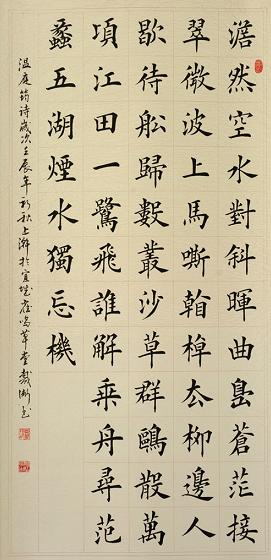 澹然空水對斜暉曲島蒼茫接
翠微波上馬嘶翰棹厺柳邊人
歇待舩歸數叢沙草群鷗散萬
頃江田一鷺飛誰解乘舟尋范
蠡五湖煙水獨忘機
温庭筠诗歲次壬辰年初秋上澣於宜城鳴草堂